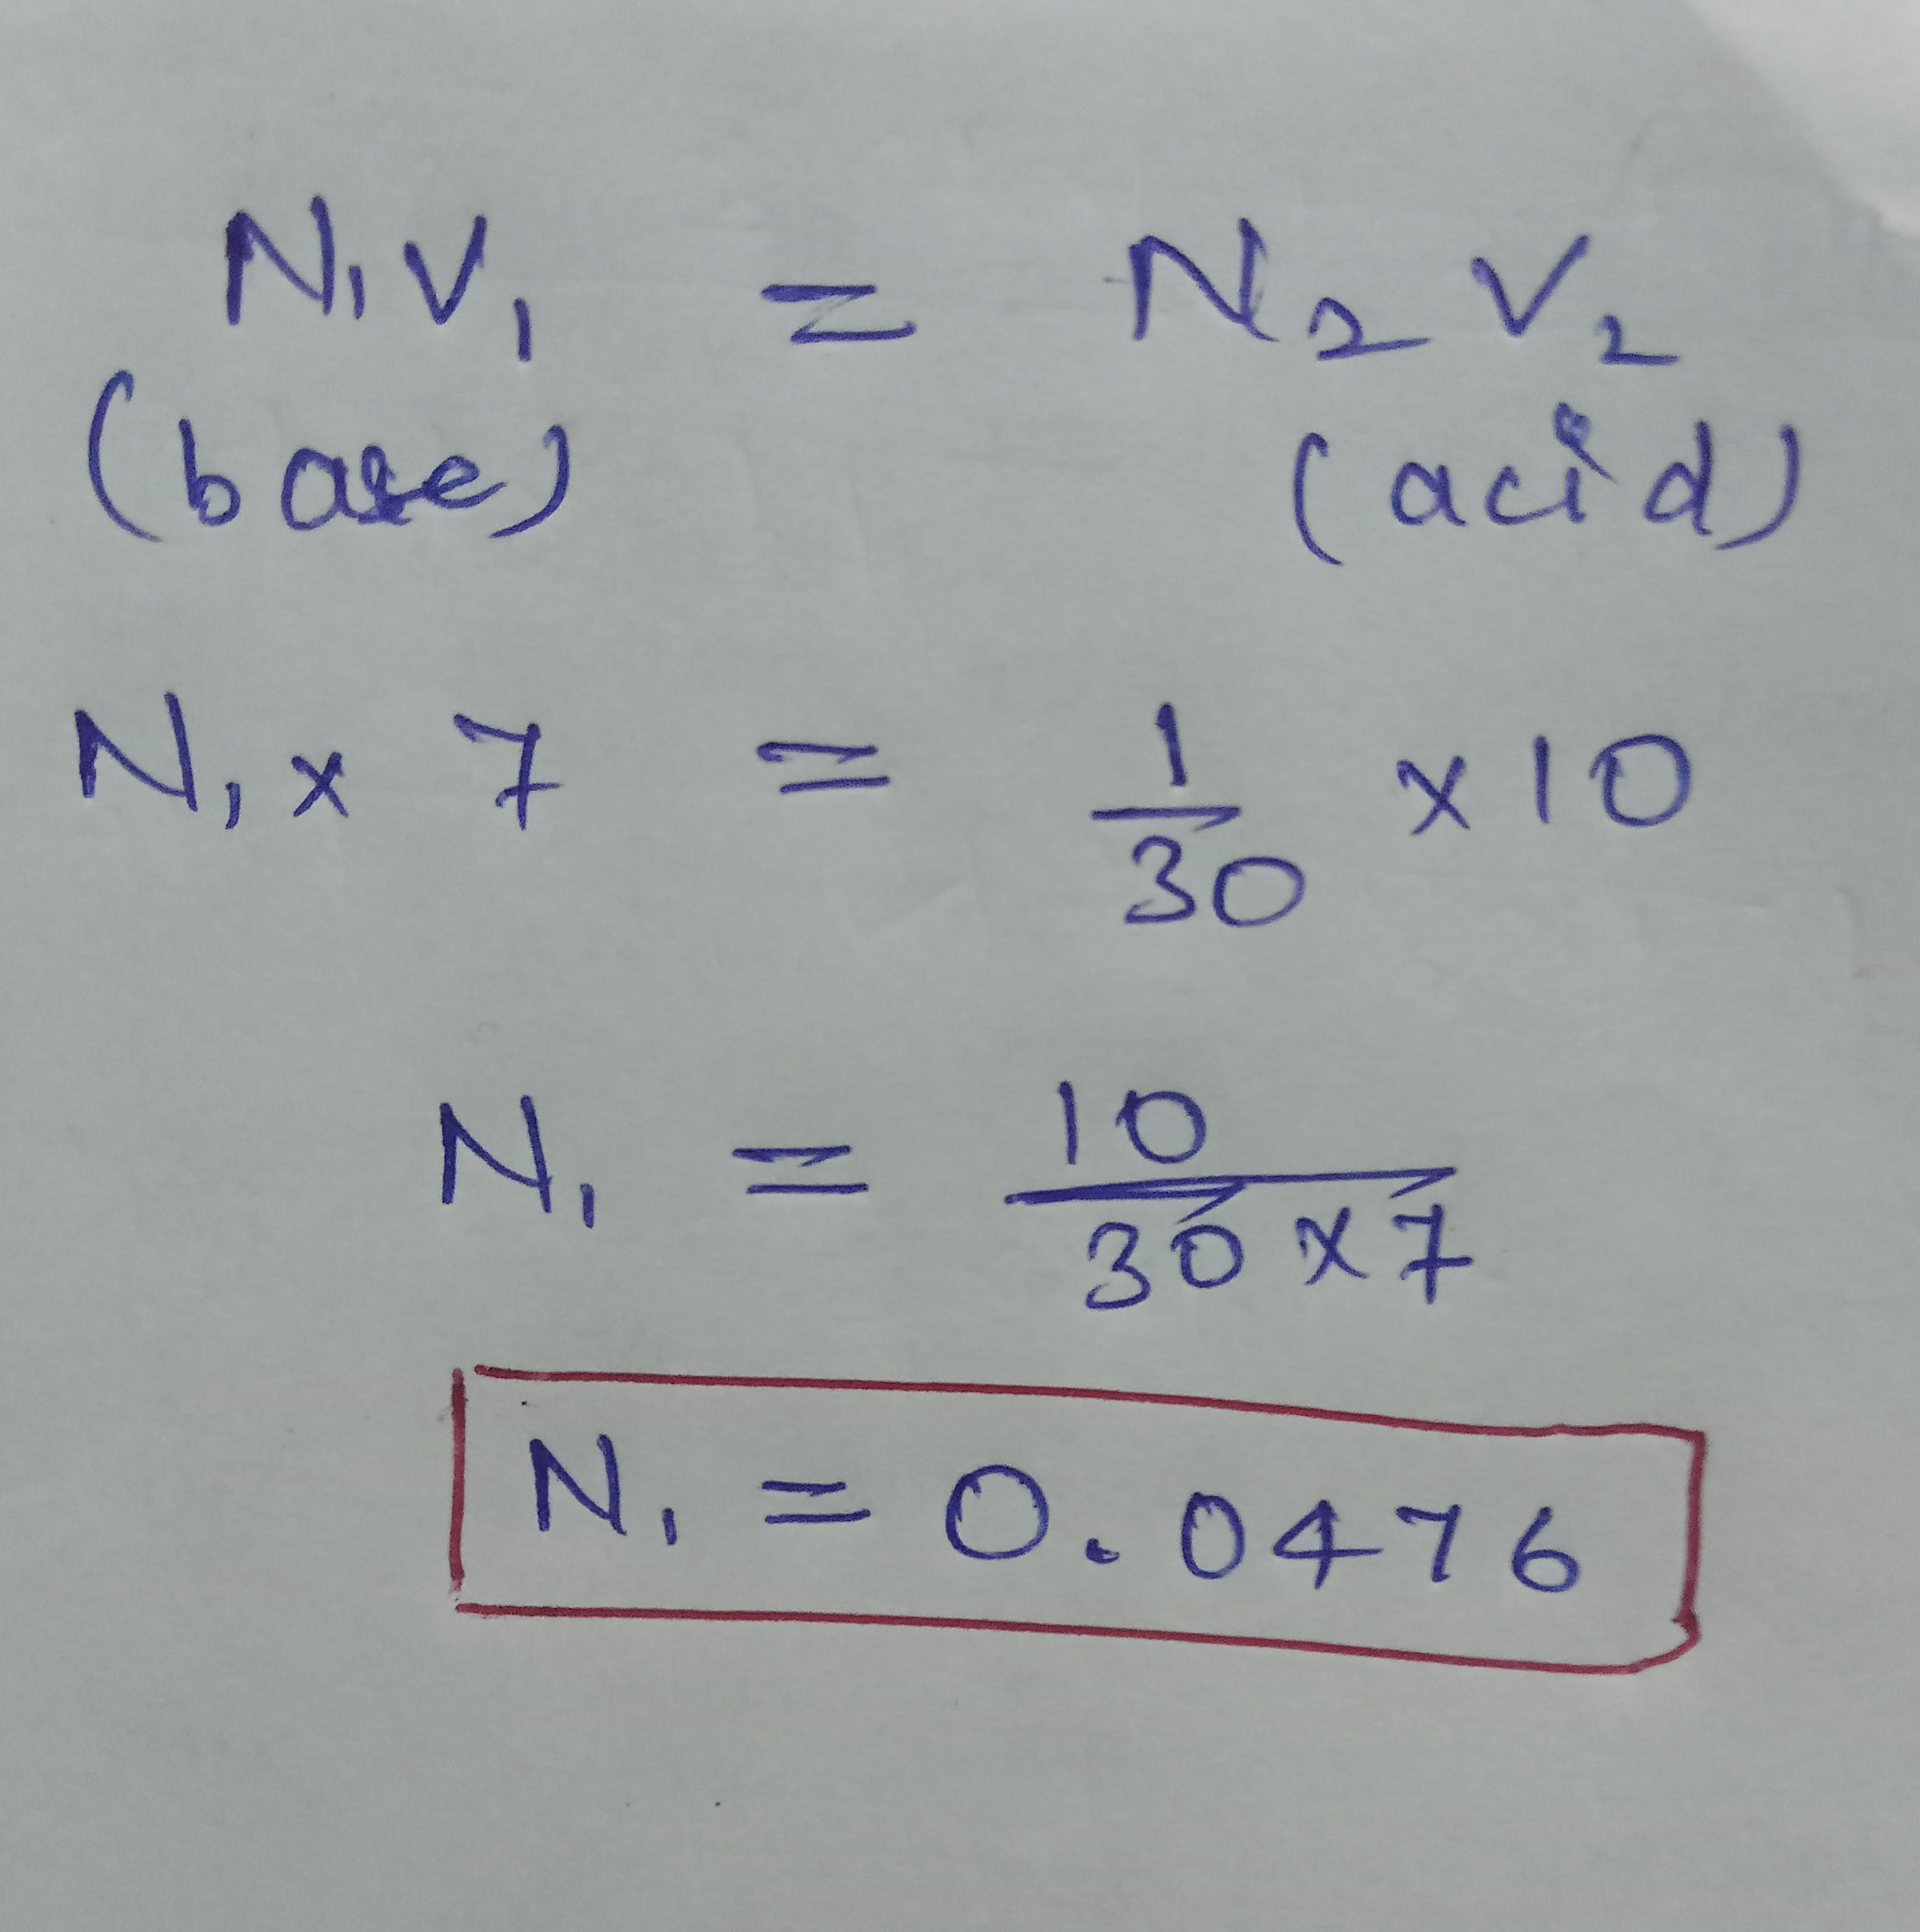 N₁V₁ = N₂V₂
(base) (acid)
N₁ x 7 = 1/30 x 10
N₁ = 10/30 x 7
N₁ = 0.0476